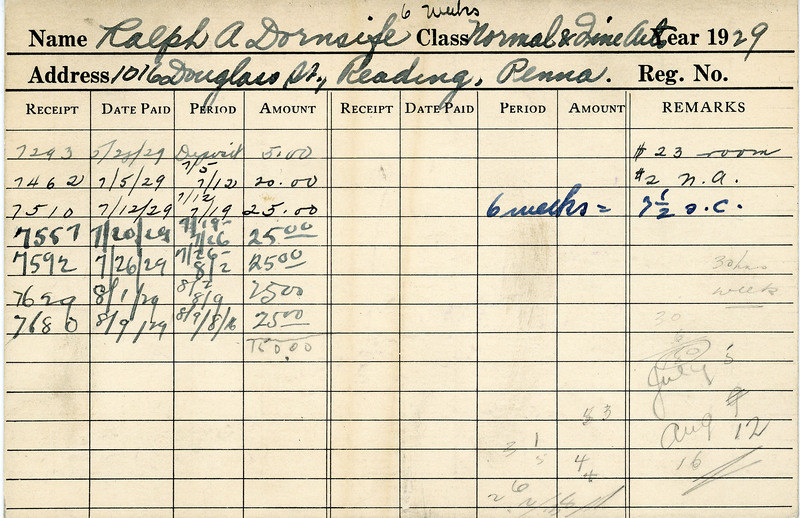 6 weeks
Name Ralph A Dornsife Class Normal & Fine Art Year 1929
Address 1016 Douglass St., Reading, Penna. Reg. No.
RECEIPT DATE PAID PERIOD AMOUNT RECEIPT DATE PAID PERIOD AMOUNT REMARKS
7293 5/23/29 Deposit 5.00 $23 room
7462 7/5/29 7/5 7/12 20.00 $2 N.A.
7510 7/12/29 7/12 7/19 25.00 6 weeks = 7½ s.c.
7557 7/20/29 7/19- 7/26 25.00
7592 7/26/29 7/26- 8/2 25.00 30 hrs
7629 8/1/29 8/2 8/9 25.00 week
7680 8/9/29 8/9/8/16 25.00 30
150.00 6
July 5
83 9
Aug 12
3 1 16
5 4
4
2 6